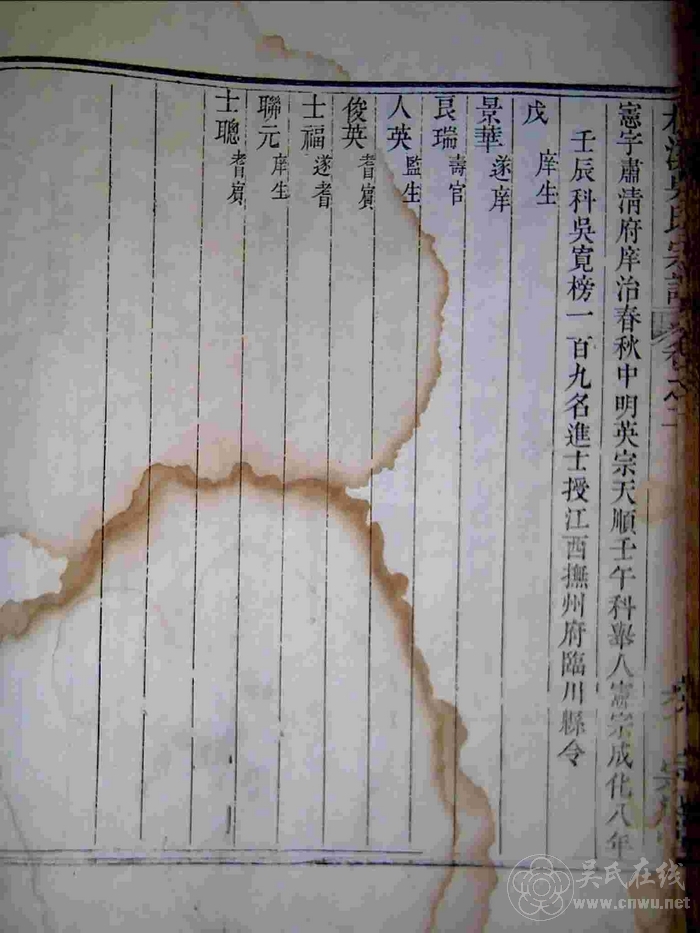 憲字肅清府庠治春秋中明英宗天順壬午科舉人憲宗成化八年
壬辰科吳寬榜一百九名進士授江西撫州府臨川縣令
戊 庠生
景華 遂庠
良瑞 壽官
人英 監生
俊英 耆賓
士福 遂耆
聯元 庠生
士聰 耆賓
吳氏在线
www.cnwu.net